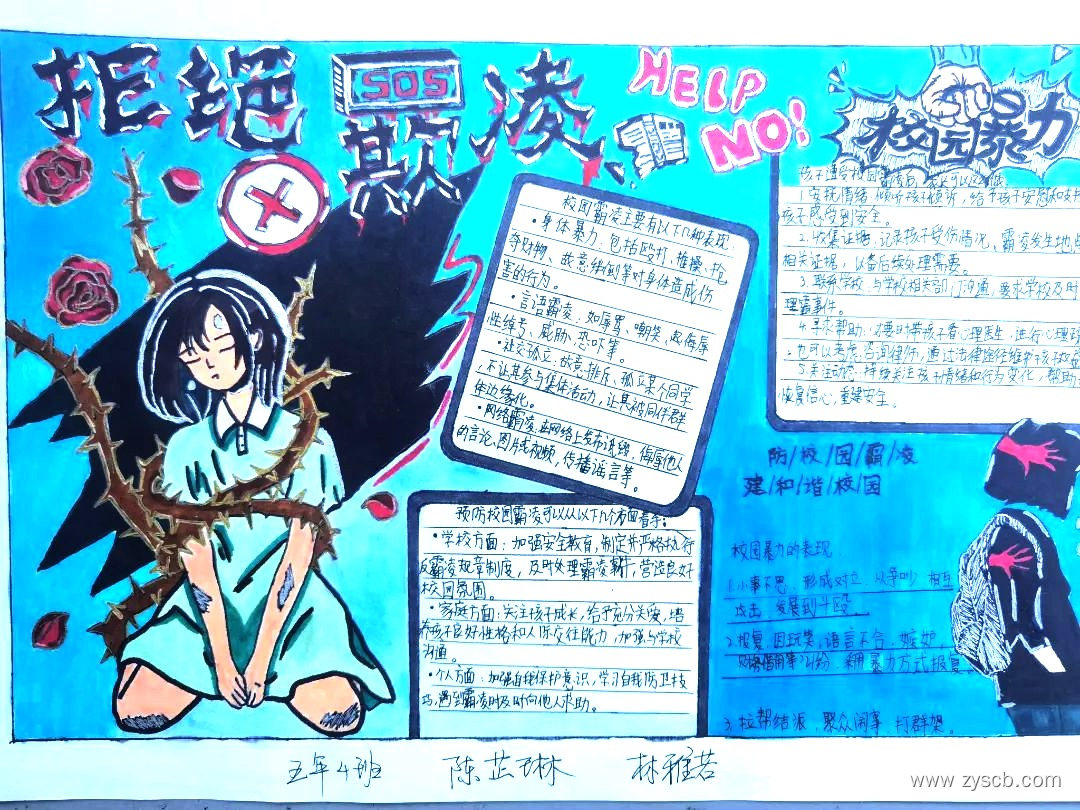 拒绝
SOS
欺凌
HELP
NO!
校园暴力
校园霸凌主要有以下几种表现:
•身体暴力:包括殴打、推搡、抢
夺财物、故意绊倒等对身体造成伤
害的行为。
•言语霸凌:如辱骂、嘲笑、起侮辱
性绰号、威胁、恐吓等。
•社交孤立:故意排斥、孤立某个同学
不让其参与集体活动,让其被同伴群
体边缘化。
•网络霸凌:在网络上发布诋毁、侮辱他人
的言论、图片或视频,传播谣言等。
预防校园霸凌可以从以下几个方面着手:
•学校方面:加强安全教育,制定并严格执行
反霸凌规章制度,及时处理霸凌事件,营造良好
校园氛围。
•家庭方面:关注孩子成长,给予充分关爱,培
养孩子良好性格和人际交往能力,加强与学校
沟通。
•个人方面:加强自我保护意识,学习自我防卫技
巧,遇到霸凌时及时向他人求助。
孩子遭受校园霸凌后,家长可以这样做
1.安抚情绪:倾听孩子倾诉,给予孩子安慰和支持
孩子感受到安全。
2.收集证据:记录孩子受伤情况、霸凌发生地点
相关证据,以备后续处理需要。
3.联系学校:与学校相关部门沟通,要求学校及时
理霸事件。
4.寻求帮助:必要时带孩子看心理医生,进行心理
也可以考虑咨询律师,通过法律途径维护孩子权益
5.关注动态:持续关注孩子情绪和行为变化,帮助
恢复信心,重建安全。
防/校/园/霸/凌
建/和/谐/校/园
校园暴力的表现
1.小事不忍,形成对立,从争吵,相互
攻击,发展到斗殴。
2.报复,因玩笑,语言不合,嫉妒,
纠纷,采用暴力方式报复
3.拉帮结派,聚众闹事,打群架。
五年4班 陈芷琳 林雅若
www.zyscb.com